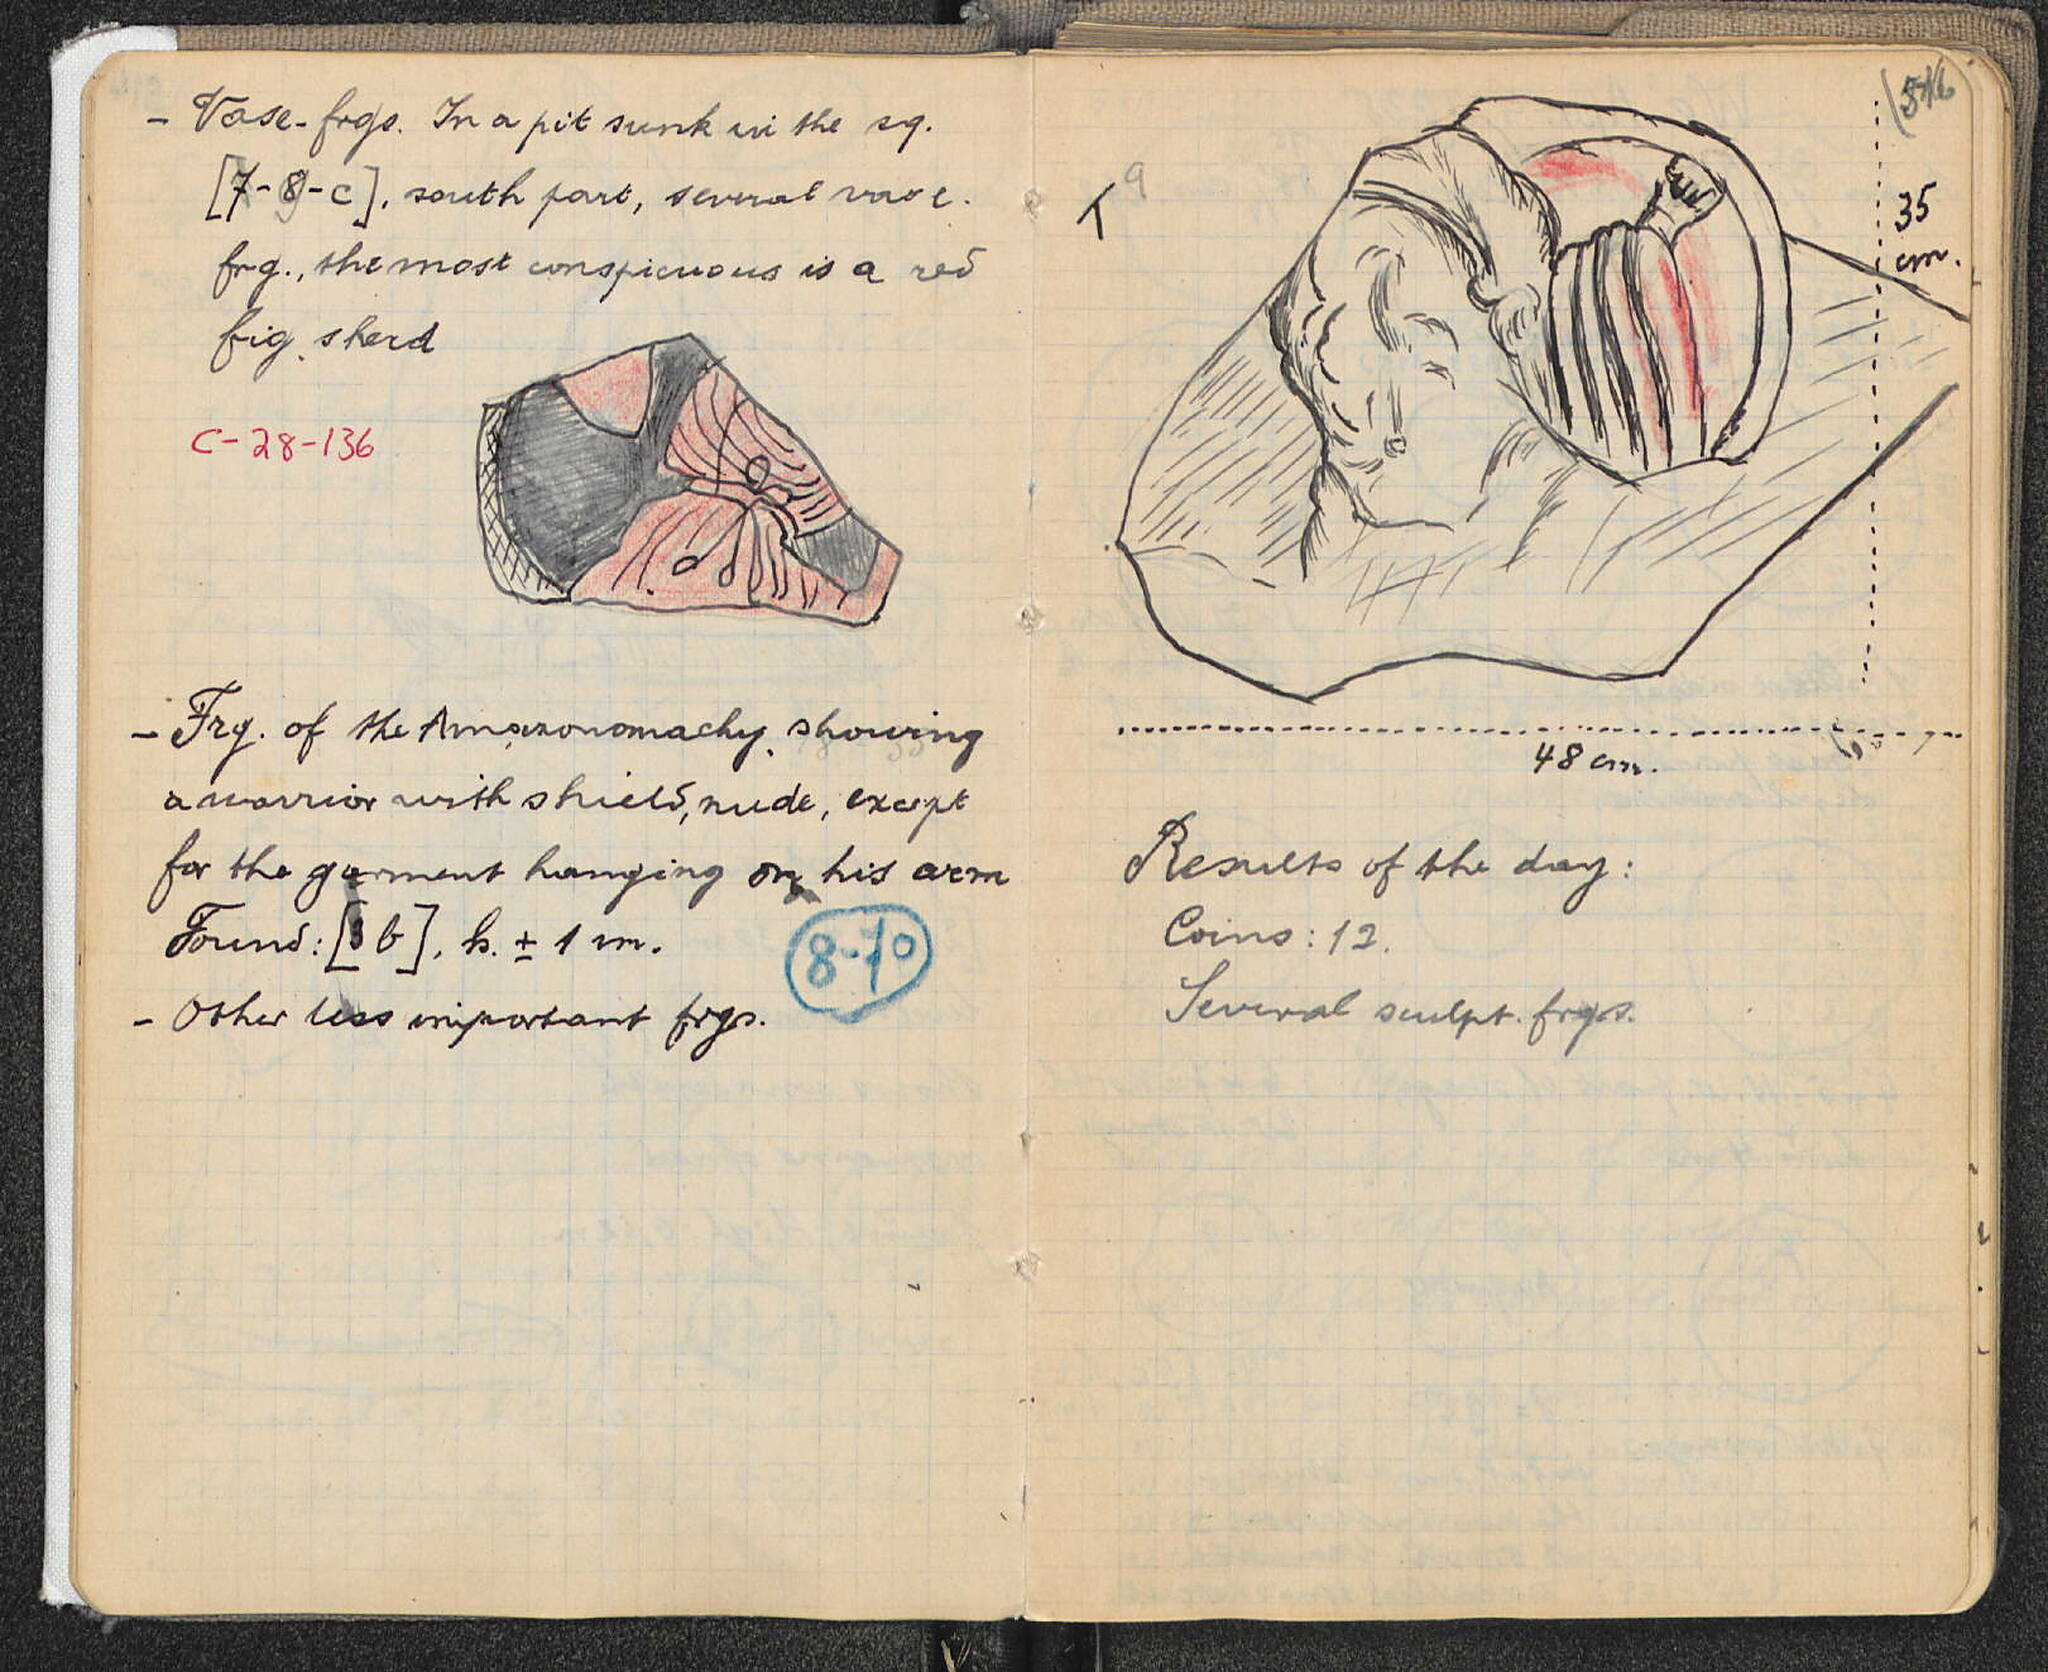 - Vase-frgs. In a pit sunk in the sq.
[7-8-c], south part, several vase.
frg., the most conspicuous is a red
fig. sherd
C-28-136
- Frg. of the Amazonomachy, showing
a warrior with shield, nude, except
for the garment hanging on his arm
Found: [8 b], h. ± 1 m.
8-70
- Other less important frgs.
9
35
cm.
48 cm.
Results of the day:
Coins: 12.
Several sculpt. frgs.